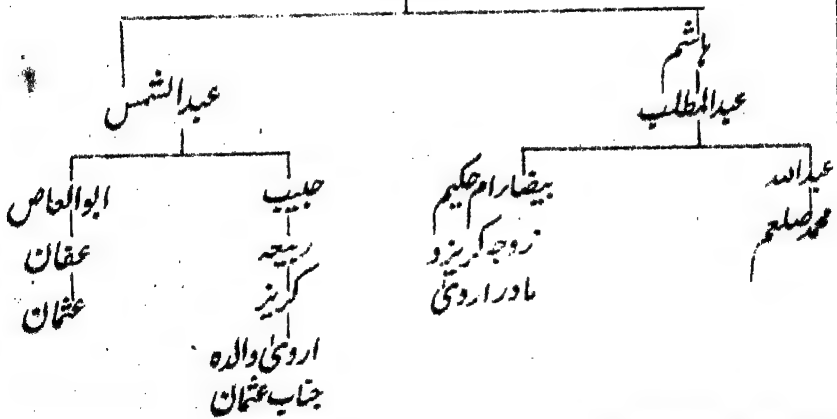 ہاشم
عبدالمطلب
عبدالشمس
عبداللہ
محمد صلعم
بیضا ام حکیم
زوجہ کریز و
مادر اروی
حبیب
ربیعہ
کریز
ارویٰ والدہ
جناب عثمان
ابوالعاص
عفان
عثمان